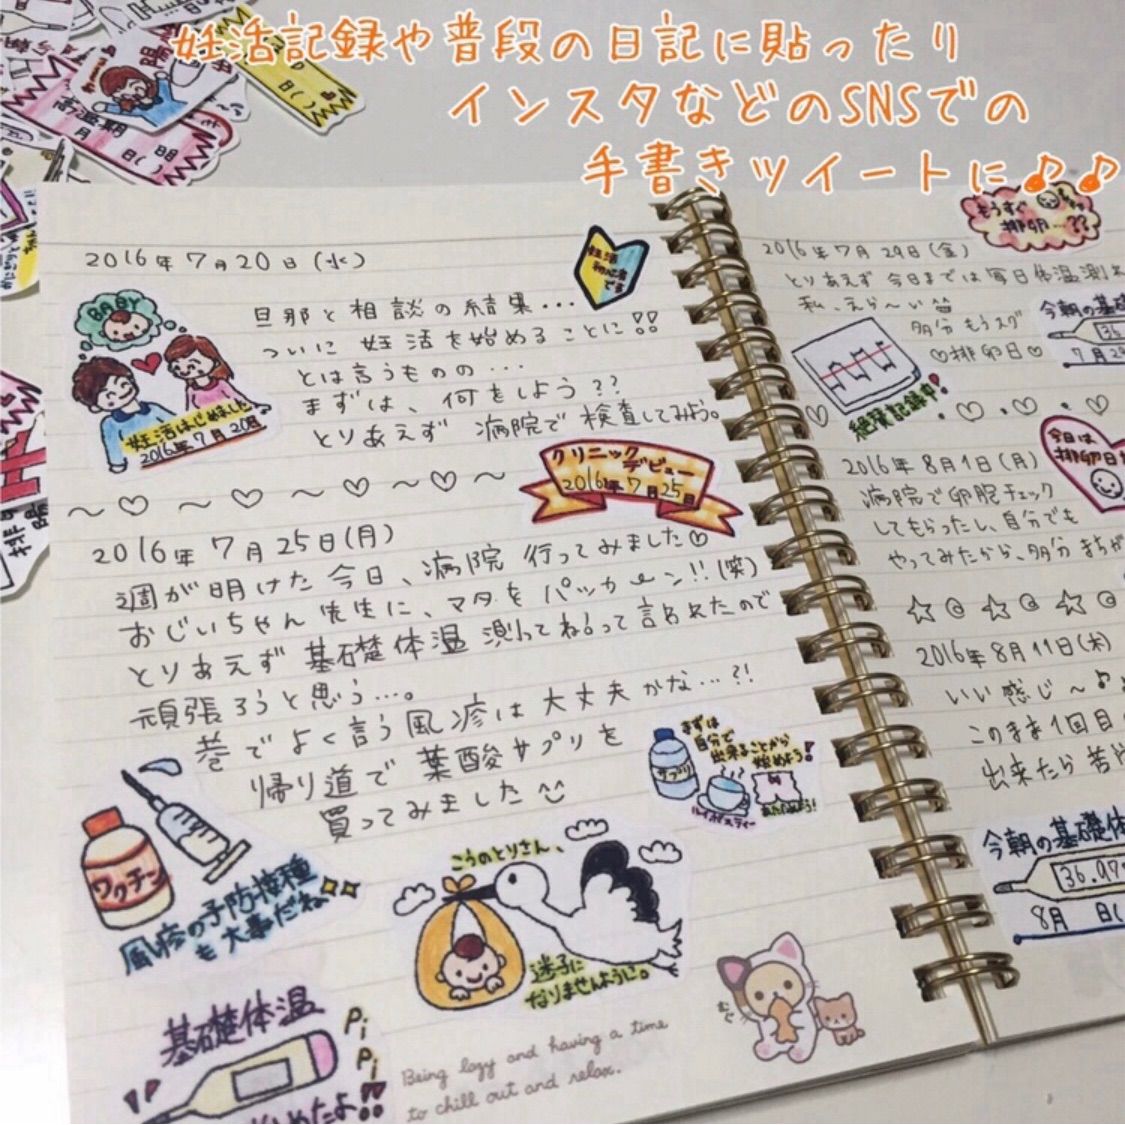 妊活記録や普段の日記に貼ったり
インスタなどのSNSでの
手書きツイートに♪♪
2016年7月20日(水)
妊活
初心者
です
BABY
旦那と相談の結果...
ついに 妊活を始めることに!!
とは言うものの...
まずは、何をしよう??
とりあえず 病院で検査してみよう。
妊活はじめました
2016年7月20日
クリニック
デビュー
2016年7月25日
2016年7月25日(月)
週が明けた今日、病院行ってみました♡
おじいちゃん先生に、マタをパッカーン!!(笑)
とりあえず 基礎体温 測ってね!って言われたので
頑張ろうと思う...。
巷でよく言う風疹は大丈夫かな...?!
帰り道で 葉酸サプリを
買ってみました
まずは
自分で
出来ることから
始めよう!
サプリ
ルイボスティー
あたためよう!
ワクチン
風疹の予防接種
も大事だね
こうのとりさん、
迷子に
なりませんように。
基礎体温
Pi
Pi
!!
むぐ
Being lazy and having a time
to chill out and relax.
もうすぐ
排卵...??
2016年7月29日(金)
とりあえず今日までは毎日体温測れ
私、えら〜い
多分もうスグ
♡排卵日♡
今朝の基礎
36
7月2
絶賛記録中!
今日は
排卵日
2016年8月1日(月)
病院で卵胞チェック
してもらったし、自分でも
やってみたから、多分まちが
2016年8月11日(木)
いい感じ〜♪
このまま1回目
出来たら苦
今朝の基礎体
36.97
8月 日(
高温期
月 日
日( )